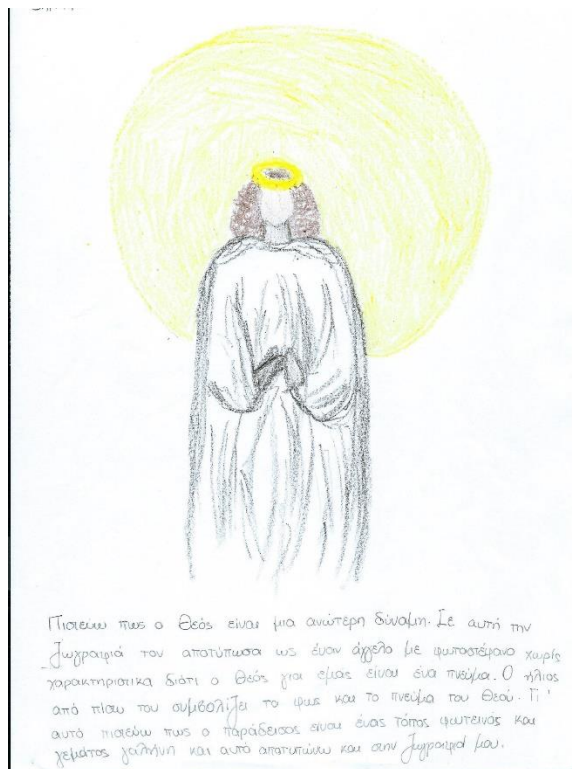 Πιστεύω πως ο Θεός είναι μια ανώτερη δύναμη. Σε αυτή την
ζωγραφιά τον αποτύπωσα ως έναν άγγελο με φωτοστέφανο χωρίς
χαρακτηριστικα διότι ο Θεός για εμας είναι ένα πνεύμα. Ο ήλιος
από πίσω του συμβολίζει το φως και το πνεύμα του Θεού. Γι'
αυτό πιστεύω πως ο παράδεισος είναι ένας τόπος φωτεινός και
γεμάτος γαλήνη και αυτό αποτυπώνω και στην ζωγραφιά μου.